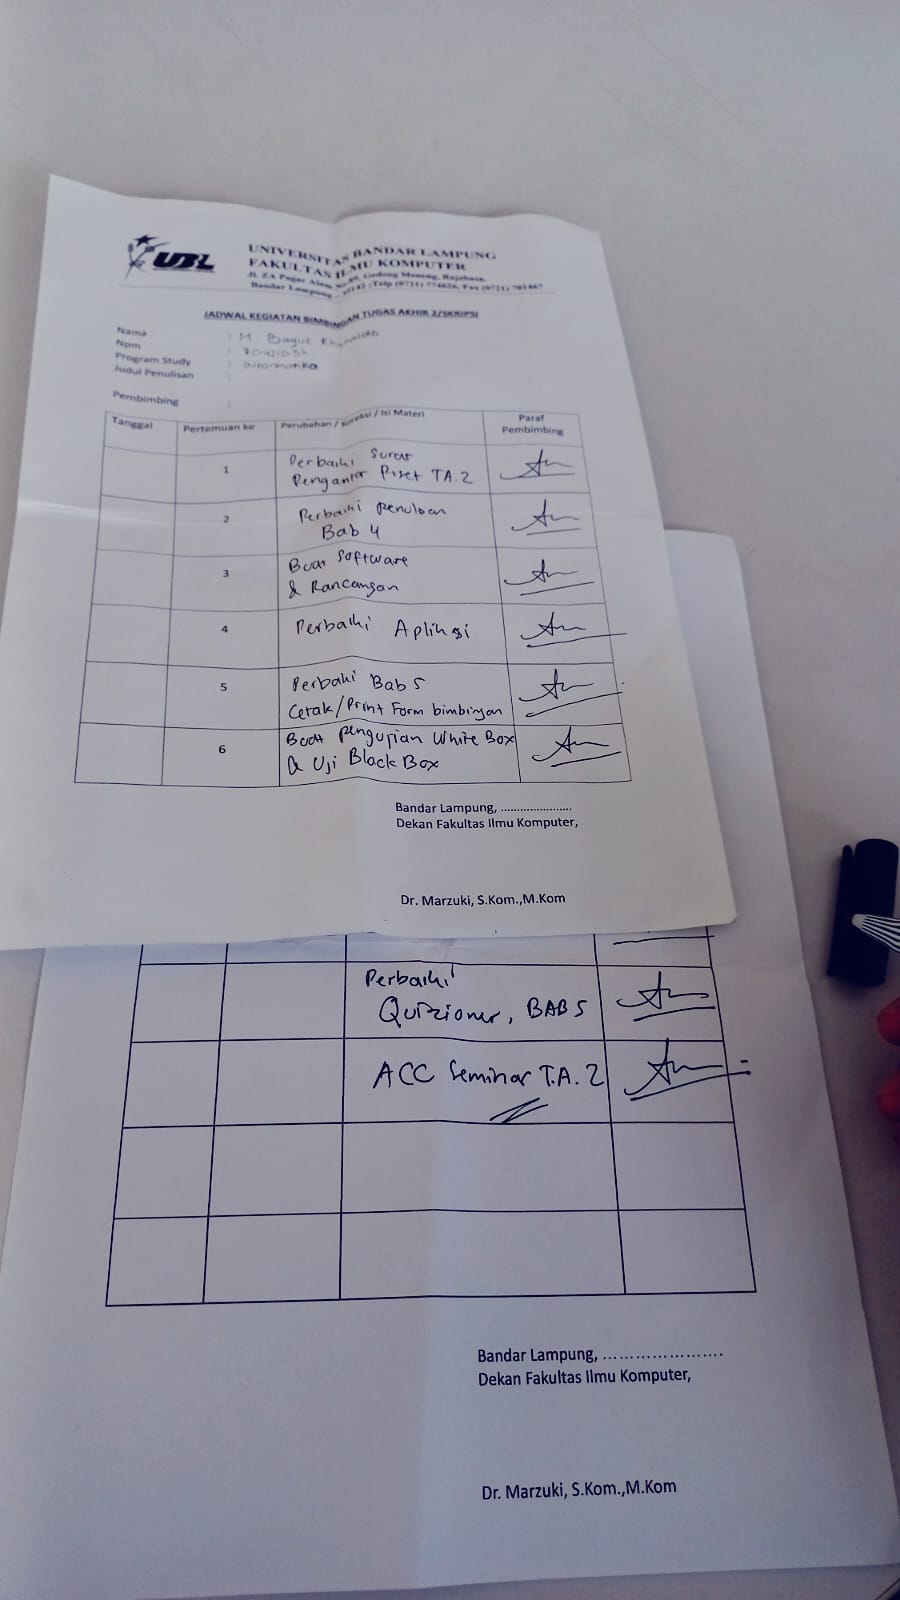 UBL
UNIVERSITAS BANDAR LAMPUNG
FAKULTAS ILMU KOMPUTER
Jl. ZA Pagar Alam No. Gedong Meneng, Rajabasa,
Bandar Lampung – 35142 Telp (0721)
JADWAL KEGIATAN BIMBINGAN TUGAS AKHIR 2/SKRIPSI
Nama : M Bagus
Npm :
Program Study : Informatika
Judul Penulisan :
Pembimbing :
Tanggal Pertemuan ke Perubahan / Koreksi / Isi Materi Paraf Pembimbing
1 Perbaiki Surat
Pengantar Riset TA.2
2 Perbaiki penulisan
Bab 4
3 Buat Software
& Rancangan
4 Perbaiki Aplikasi
5 Perbaki Bab 5
Cetak/Print Form bimbingan
6 Buat pengujian White Box
& Uji Black Box
Bandar Lampung, ......................
Dekan Fakultas Ilmu Komputer,
Dr. Marzuki, S.Kom.,M.Kom
Perbaiki
Quizioner, BAB 5
ACC Seminar T.A. 2
Bandar Lampung, ......................
Dekan Fakultas Ilmu Komputer,
Dr. Marzuki, S.Kom.,M.Kom